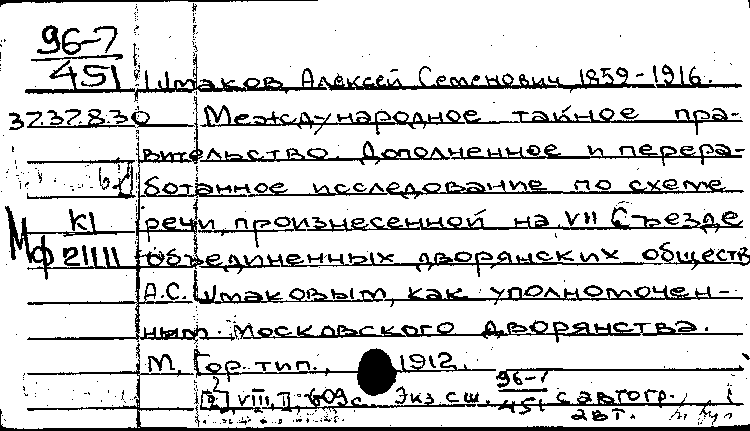 96-7
451
Шмаков, Алексей Семенович, 1859-1916.
3732830 Международное тайное пра-
вительство. Дополненное и перера-
ботанное исследование по схеме
речи, произнесенной на VII Съезде
Мф К1
21111
объединенных дворянских обществ
А.С. Шмаковым, как уполномочен-
ным Московского дворянства.
М., Гор. тип., 1912.
[2], VIII, II, 609 с. Экз. с ш. 96-7
451 с автогр.
авт.